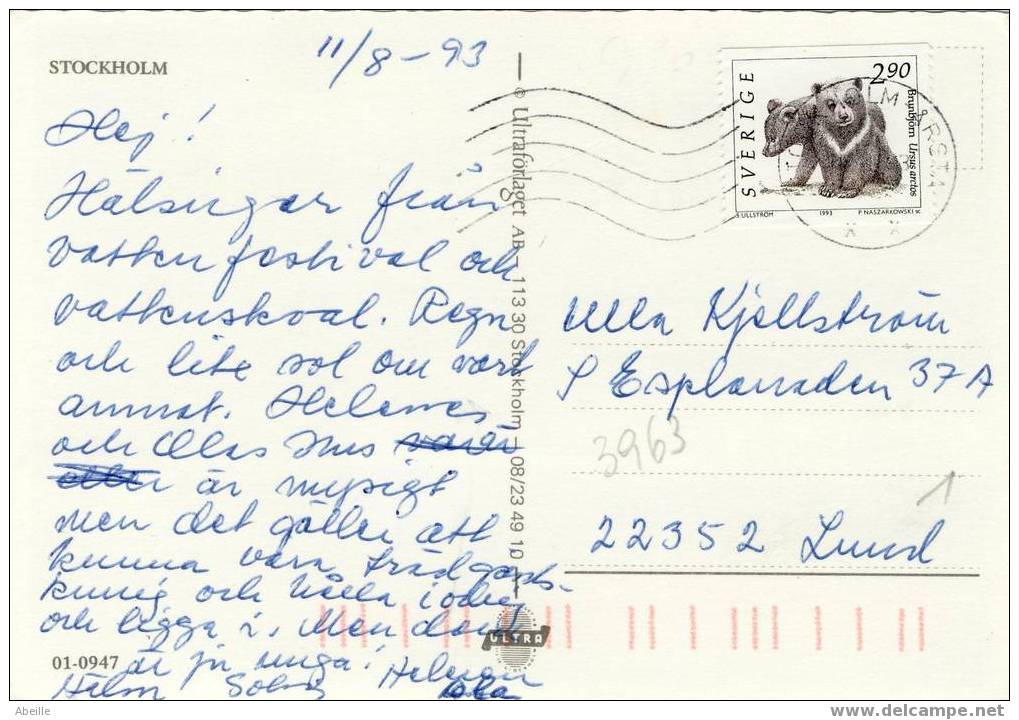 11/8-93
STOCKHOLM
Hej!
Hälsingar från
vattenfestival och
vattenskoal. Regn
och lite sol om vart
annat. Helenes
och Olas hus
är mysigt
men det gäller att
kunna vara trädgårds-
kunnig och hålla i
och ligga i. Men de
är ju unga!
01-0947
© Ultraförlaget AB - 113 30 Stockholm - 08/23 49 10
ULTRA
SVERIGE
2.90
Brunbjörn Ursus arctos
S ULLSTRÖM 1993 P NASZARKOWSKI SC
Ulla Kjellström
S Esplanaden 37A
3963
1
22352 Lund
Abeille
www.delcampe.net